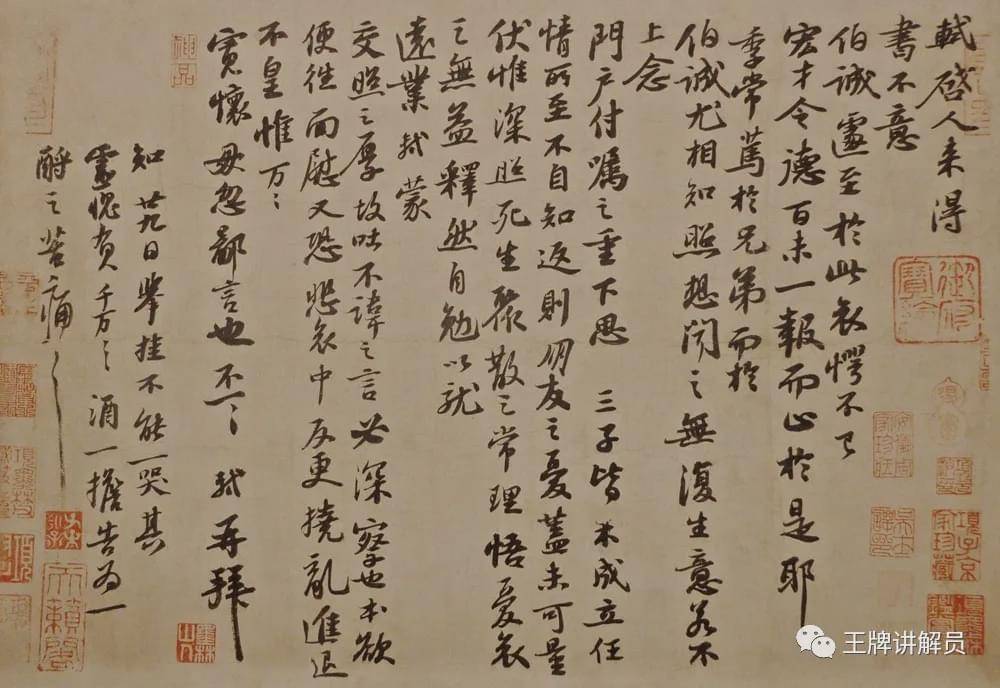 軾啓人来得
書不意
伯誠遽至於此哀愕不已
宏才令德百未一報而止於是耶
季常篤於兄弟而於
伯誠尤相知照想聞之無復生意若不
上念
門户付嘱之重下思三子皆未成立任
情所至不自知返則朋友之憂蓋未可量
伏惟深照死生聚散之常理悟憂哀
之無益釋然自勉以就
遠業軾蒙
交照之厚故吐不諱之言必深察也本欲
便往面慰又恐悲哀中反更撓亂進退
不皇惟万〻
寬懷毋忽鄙言也不一〻軾再拜
知廿九日舉挂不能一哭其
靈愧負千万〻酒一擔告为一
酹之苦痛〻
神品
御府寶繪
項子京家珍藏
天籟閣
墨林山人
王牌讲解员